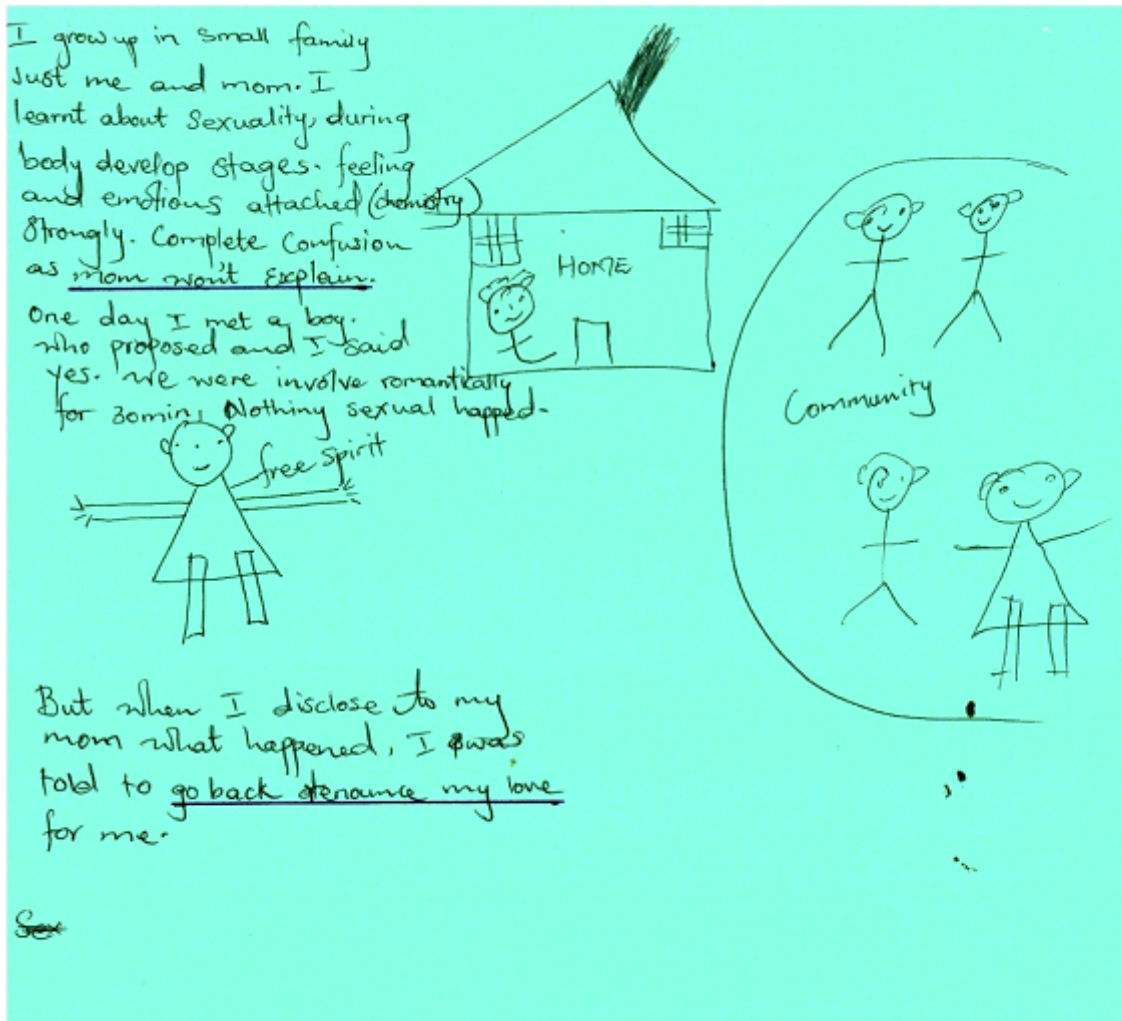 I grow up in small family
Just me and mom. I
learnt about Sexuality, during
body develop stages. feeling
and emotions attached (chemistry)
Strongly. Complete Confusion
as mom won't explain.
One day I met a boy.
who proposed and I said
yes. We were involve romantically
for 30min, Nothing sexual happed.
free spirit
But when I disclose to my
mom what happened, I was
told to go back renounce my love
for me.
Sex
HOME
Community